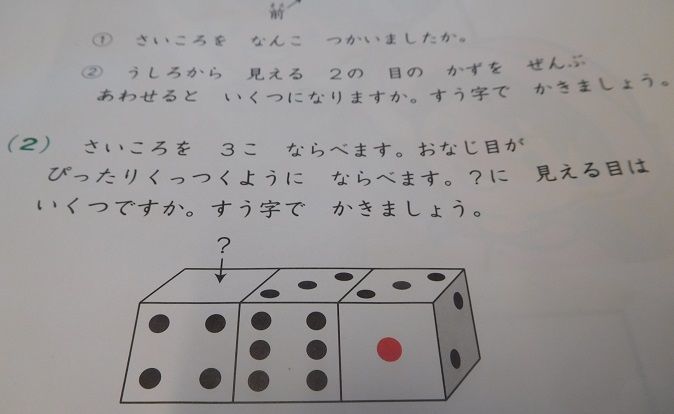 前
① さいころを なんこ つかいましたか。
② うしろから 見える 2の 目の かずを ぜんぶ
あわせると いくつになりますか。すう字で かきましょう。
(2) さいころを 3こ ならべます。おなじ目が
ぴったりくっつくように ならべます。?に 見える目は
いくつですか。すう字で かきましょう。
?